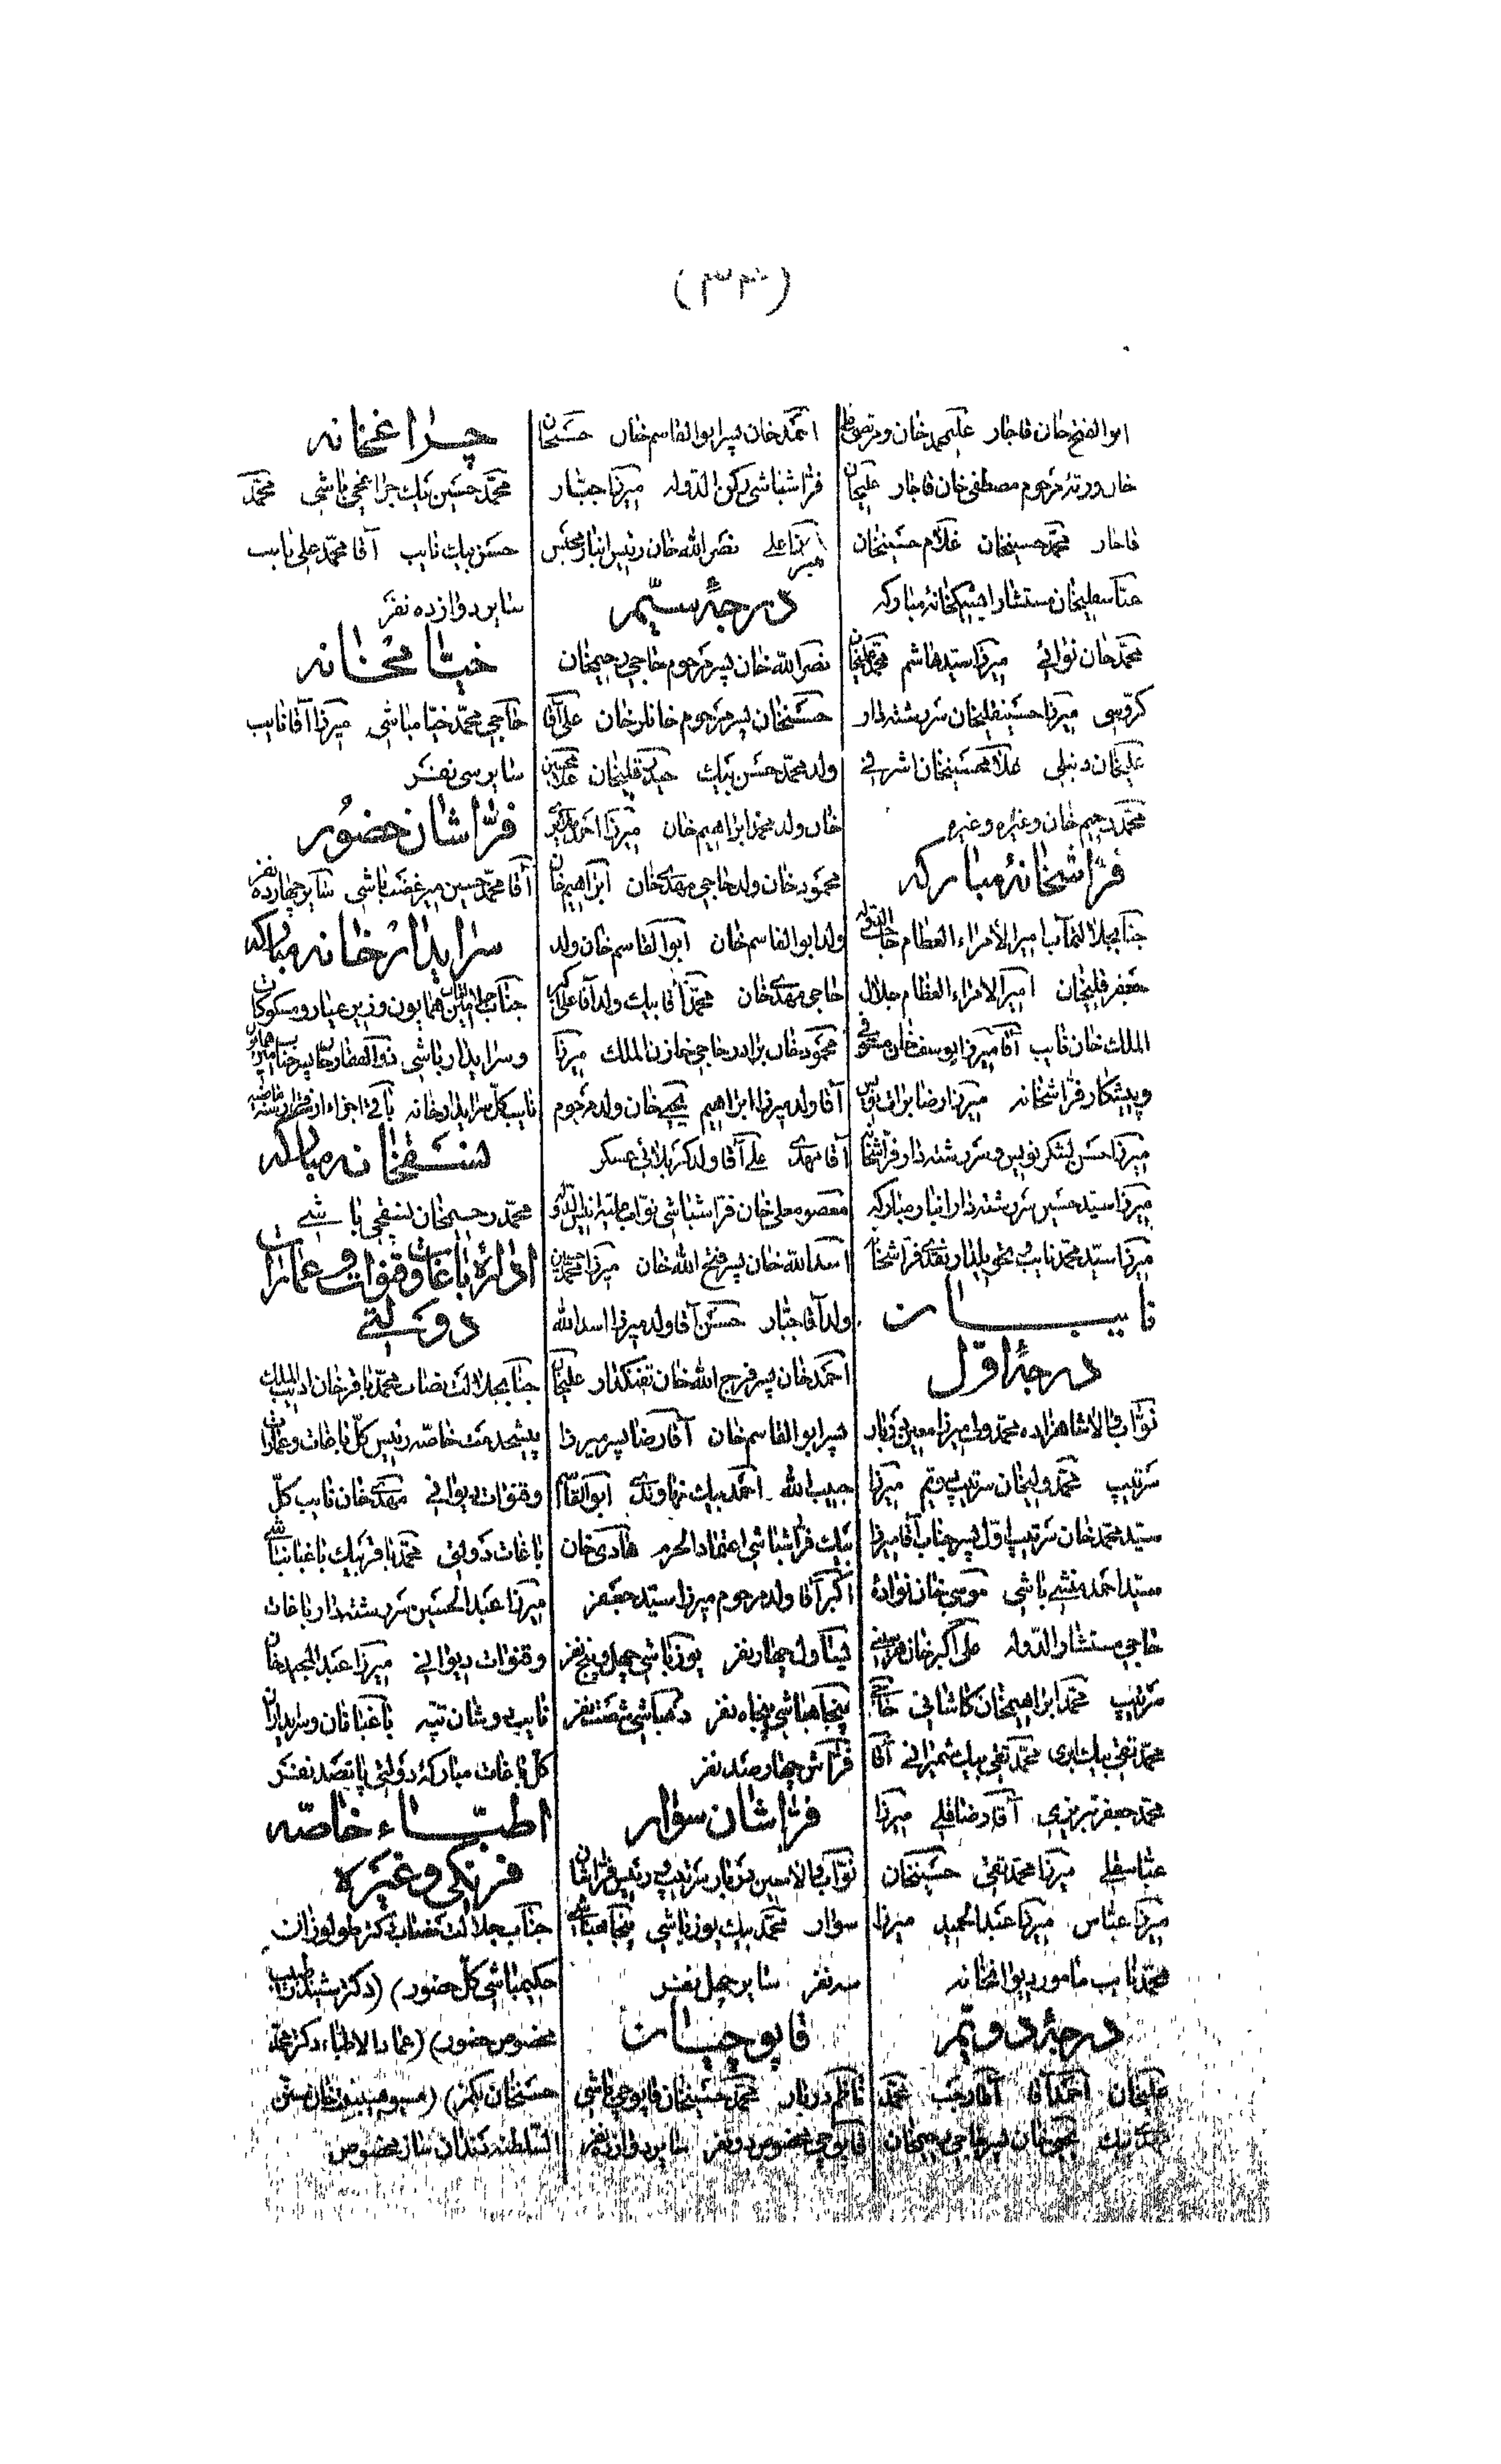 (۳۳)
ابوالفتح خان قاجار علیمحمد خان و مرتضی قلی
خان ورثهٔ مرحوم مصطفی خان قاجار علیخان
قاجار محمد حسینخان غلام حسینخان
عباسعلیخان مستشار اصطبلخانهٔ مبارکه
محمد خان نوائی میرزا سید هاشم محمد علیخان
کروسی میرزا حسینقلیخان سررشته دار
علیخان دنبلی غلامحسینخان اشرفی
محمد رحیم خان و غیره و غیره
فراشخانهٔ مبارکه
جناب جلالتمآب امیرالامراء العظام حاجب الدوله
جعفرقلیخان امیرالامراء العظام جلال
الملک خان نایب آقا میرزا یوسف خان مستوفی
و پیشکار فراشخانه میرزا رضا برات نویس
میرزا حسن لشکر نویس و سررشته دار فراشخانه
میرزا سید حسین سررشته دار انبار مبارکه
میرزا سید محمد نایب و تحویلدار نقدی فراشخانه
نایبان
درجهٔ اول
نواب والا شاهزاده محمد ولی میرزا معین دربار
سرتیپ محمد ولیخان سرتیپ دویم میرزا
سید محمد خان سرتیپ اول پسر جناب آقا میرزا
سید احمد منشی باشی موسی خان نوادهٔ
حاجی مستشار الدوله علی اکبر خان هراتی
سرتیپ محمد ابراهیمخان کاشانی حاجی
محمد تقی بیک محمد تقی بیک شمیرانی آقا
محمد جعفر تبریزی آقا رضا قلی میرزا
عباسقلی میرزا محمد تقی حسینخان
میرزا عباس میرزا عبدالحمید میرزا
محمد نایب مامور دیوانخانه
درجهٔ دویم
علیخان احمد آقا آقا رجب محمد
محمد بیک یحیی خان پسر حاجی رحیمخان
احمد خان پسر ابوالقاسم خان حسنخان
فراشباشی رکن الدوله میرزا جبار
میرزا علی نصرالله خان رئیس انبار محبس
درجهٔ سیم
نصرالله خان پسر مرحوم حاجی رحیمخان
حسنخان پسر مرحوم خانلر خان علی آقا
ولد محمد حسن بیک حیدر قلیخان غلامحسین
خان ولد محمد ابراهیم خان میرزا احمد
محمود خان ولد حاجی مهدی خان ابراهیم خان
ولد ابوالقاسم خان ابوالقاسم خان ولد
حاجی مهدی خان محمد آقا بیک ولد آقا علی اکبر
محمود خان برادر حاجی خازن الملک میرزا
آقا ولد میرزا ابراهیم یحیی خان ولد مرحوم
آقا مهدی علی آقا ولد کربلائی عسکر
معصومعلی خان فراشباشی نواب علیه انیس الدوله
اسدالله خان پسر فتح الله خان میرزا محمد حسین
ولد آقا جبار حسن آقا ولد میرزا اسدالله
احمد خان پسر فرج الله خان تفنگدار علیخان
پسر ابوالقاسم خان آقا رضا پسر میرزا
حبیب الله احمد بیک نهاوندی ابوالقاسم
بیک فراشباشی اعتماد الحرم هادی خان
اکبر آقا ولد مرحوم میرزا سید جعفر
یساول چهار نفر یوزباشی چهل و پنج نفر
پنجاهباشی پنجاه نفر دهباشی شصت نفر
فراش چهار صد نفر
فراشان سوار
نواب والا معین دربار سرتیپ و رئیس فراشان
سوار محمد بیک یوزباشی پنجاهباشی
سه نفر سایر چهل نفر
قاپوچیان
ناظم دربار محمد حسینخان قاپوچی باشی
قاپوچی مخصوص دو نفر سایر دوازده نفر
چراغخانه
محمد حسین بیک چراغچی باشی محمد
حسن بیک نایب آقا محمد علی نایب
سایر دوازده نفر
خیامخانه
حاجی محمد خیامباشی میرزا آقا نایب
سایر سی نفر
فراشان حضور
آقا محمد حسین میرغضب باشی سایر چهارده نفر
سرایدارخانه مبارکه
جناب امین همایون وزیر عیار و مسکوکات
و سرایدار باشی
نایب کل سرایدارخانه باقی اجزاء از قرار
نسقخانه مبارکه
محمد رحیمخان نسقچی باشی
ادارهٔ باغات و قنوات و عمارات
دولتی
جناب جلالت نصاب محمد باقر خان ادیب الملک
پیشخدمت خاصه رئیس کل باغات و عمارات
و قنوات دیوانی مهدی خان نایب کل
باغات دولتی محمد باقر بیک باغبانباشی
میرزا عبدالحسین سررشته دار باغات
و قنوات دیوانی میرزا عبدالمجید خان
نایب دوشان تپه باغبانان و سرایداران
کل باغات مبارکهٔ دولتی پانصد نفر
اطباء خاصه
فرنگی و غیره
جناب جلالت نصاب دکتر طولوزان
حکیمباشی کل حضور) (دکتر طبیب
مخصوص حضور) (عماد الاطباء دکتر محمد
حسنخان بکمز) (مسیو هیبنت خان سنن
السلطنه دندان ساز مخصوص